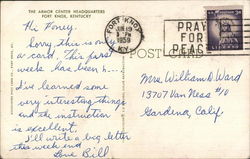 THE ARMOR CENTER HEADQUARTERS
FORT KNOX, KENTUCKY
Hi Honey.
Sorry this is on
a card. This first
week has been h---.
I've learned some
very interesting things
and the instruction
is excellent.
I'll write a big letter
this week end
Love Bill
FORT KNOX
KY.
PRAY
FOR
PEACE
POST CARD
Mrs. William D. Ward
13707 Van Ness #10
Gardena, Calif.